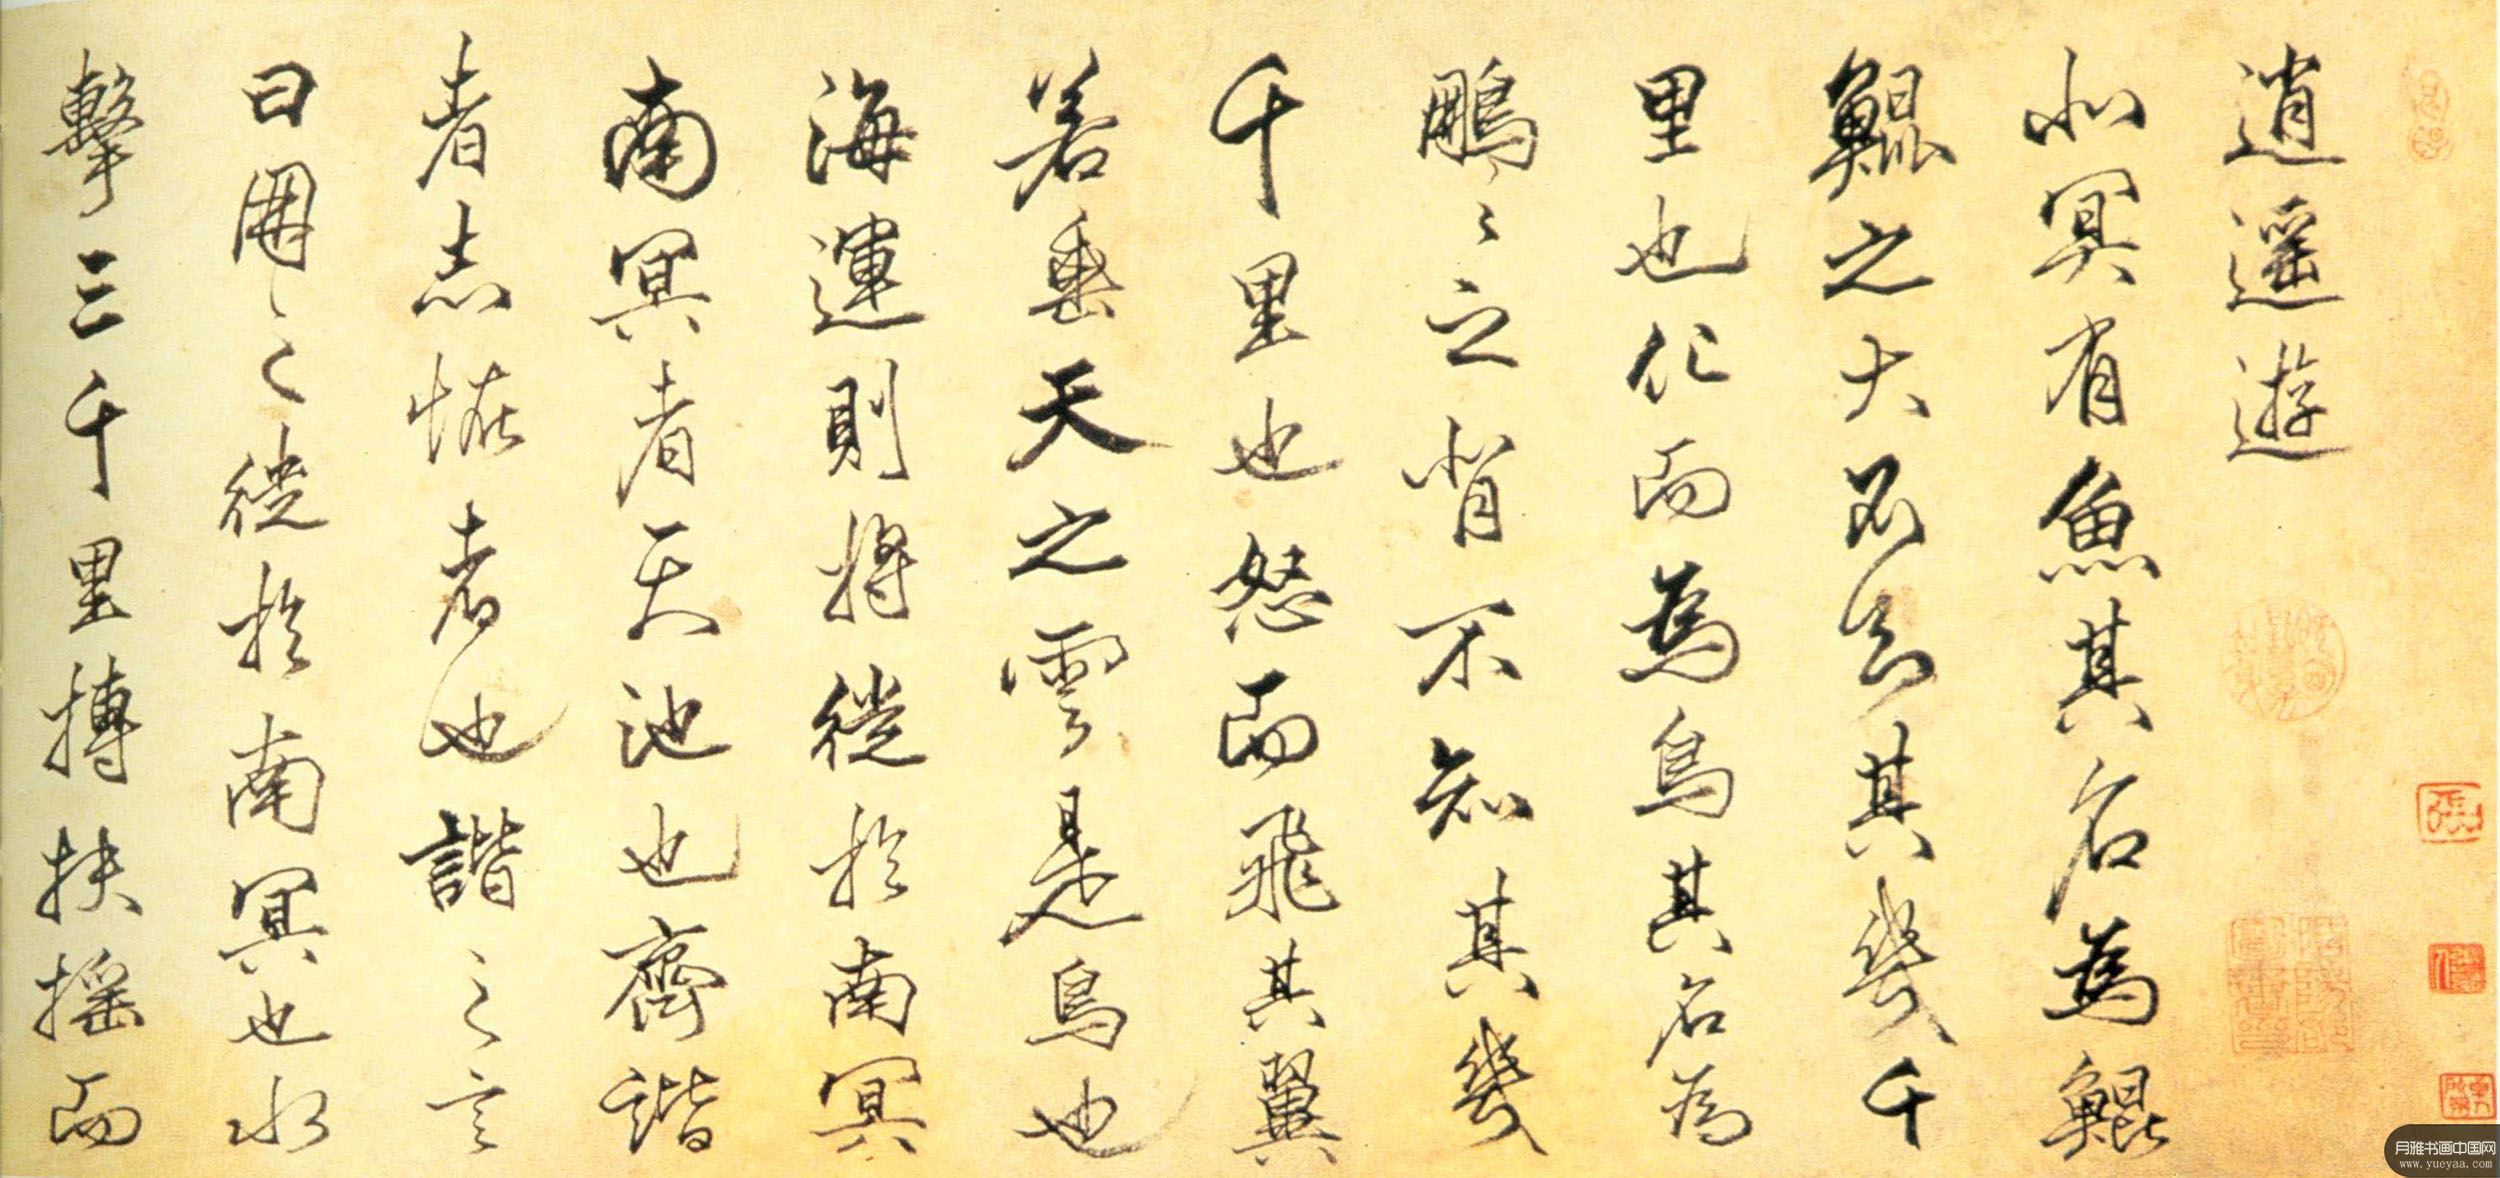 逍遥遊
北冥有魚其名為鯤
鯤之大不知其幾千
里也化而為鳥其名為
鵬〻之背不知其幾
千里也怒而飛其翼
若垂天之雲是鳥也
海運則將徙於南冥
南冥者天池也齊諧
者志恠者也諧之言
曰鵬之徙於南冥也水
擊三千里搏扶搖而
月雅书画中国网
www.yueyaa.com